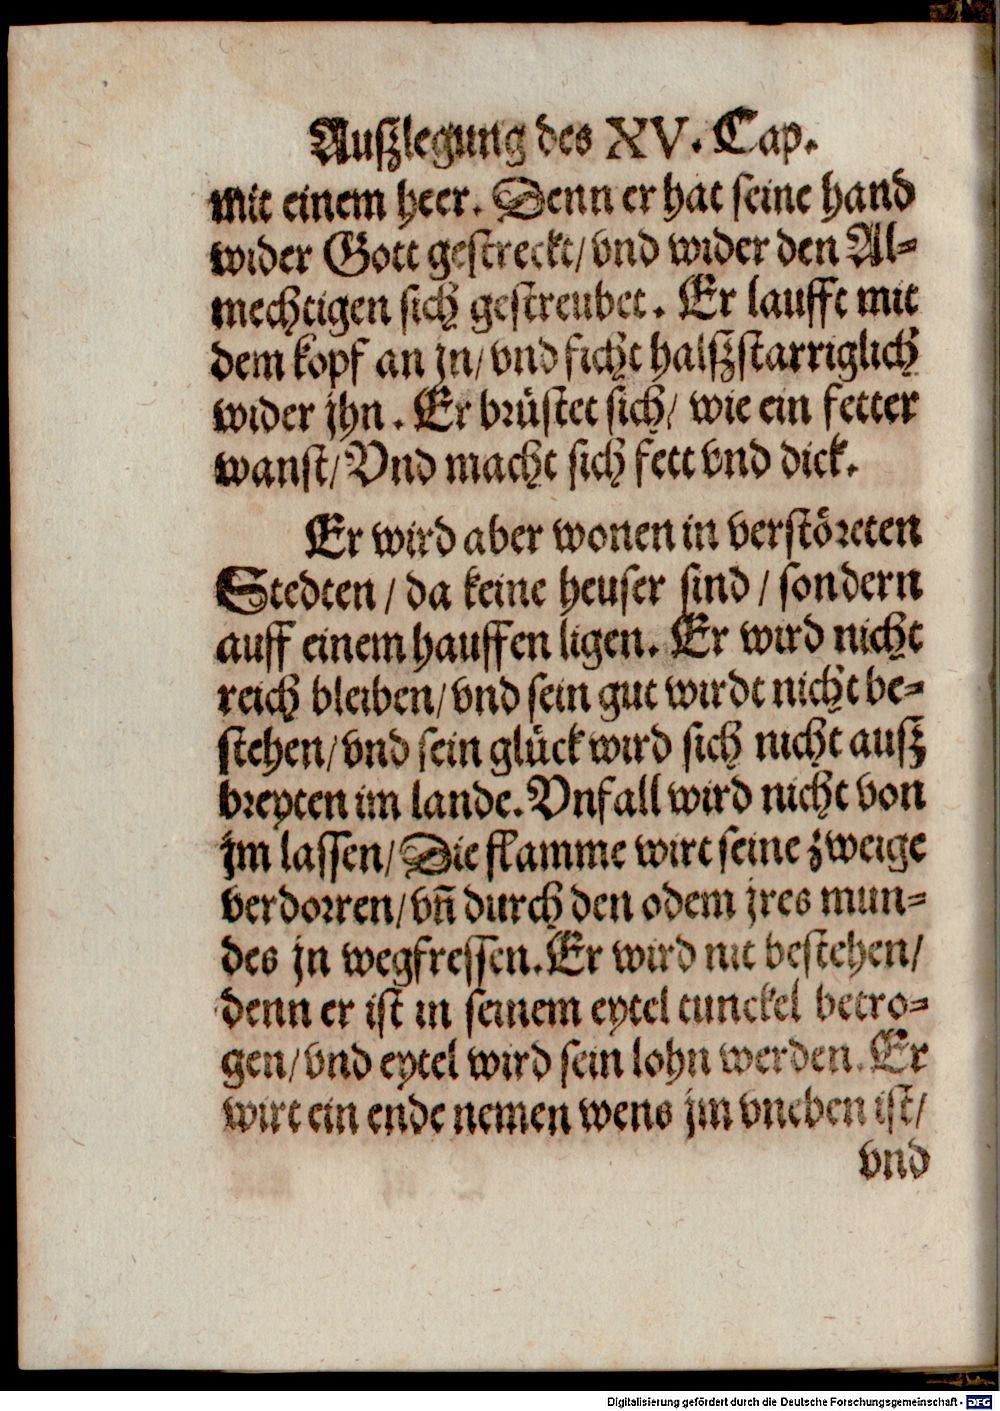 Auſzlegung des XV. Cap.
mit einem heer. Denn er hat ſeine hand
wider Gott geſtreckt/ vnd wider den Al⸗
mechtigen ſich geſtreubet. Er laufft mit
dem kopf an jn/ vnd ficht halſzſtarriglich
wider jhn. Er brüſtet ſich/ wie ein fetter
wanſt/ Vnd macht ſich fett vnd dick.
Er wird aber wonen in verſtöreten
Stedten / da keine heuſer ſind / ſondern
auff einem hauffen ligen. Er wird nicht
reich bleiben/ vnd ſein gut wirdt nicht be⸗
ſtehen/ vnd ſein glück wird ſich nicht auſz
breyten im lande. Vnfall wird nicht von
jm laſſen/ Die flamme wirt ſeine zweige
verdorren/ vñ durch den odem jres mun⸗
des jn wegfreſſen. Er wird nit beſtehen/
denn er iſt in ſeinem eytel tunckel betro⸗
gen/ vnd eytel wird ſein lohn werden. Er
wirt ein ende nemen wens jm vneben iſt/
vnd
Digitalisierung gefördert durch die Deutsche Forschungsgemeinschaft - DFG